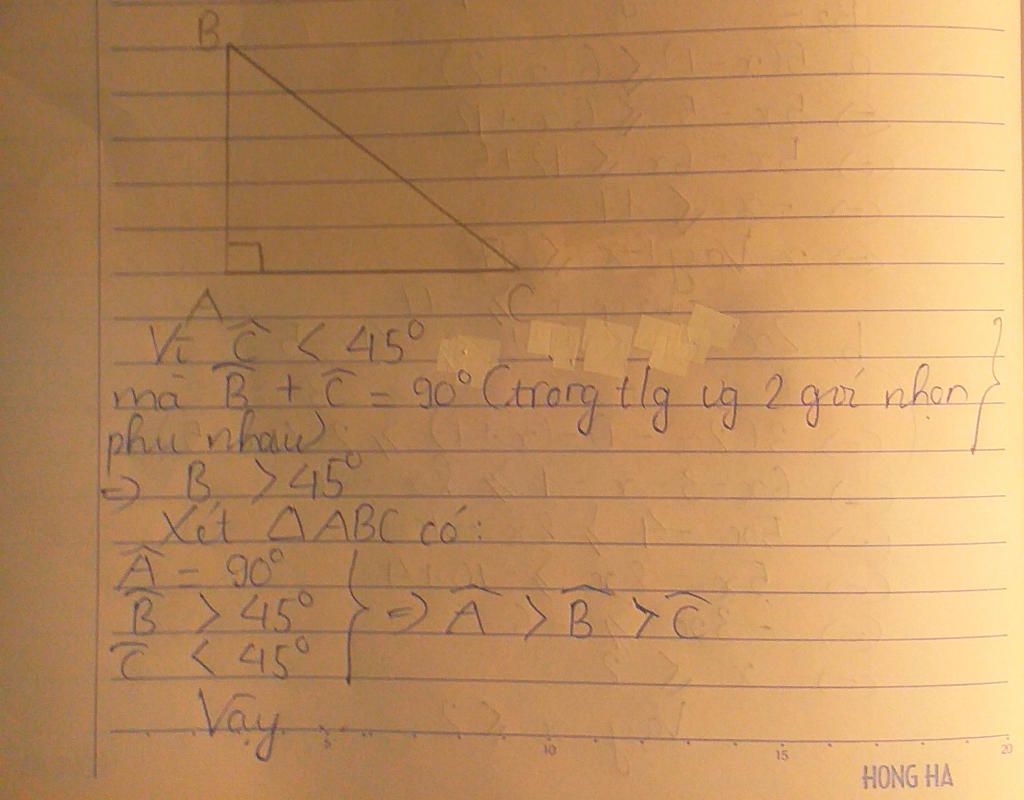 B
A
C
Vì Ĉ < 45°
mà B̂ + Ĉ = 90° (trong t/g vg 2 góc nhọn
phụ nhau)
=> B > 45°
Xét ΔABC có:
Â = 90°
B̂ > 45° => Â > B̂ > Ĉ
Ĉ < 45°
Vậy
5 10 15 20
HONG HA